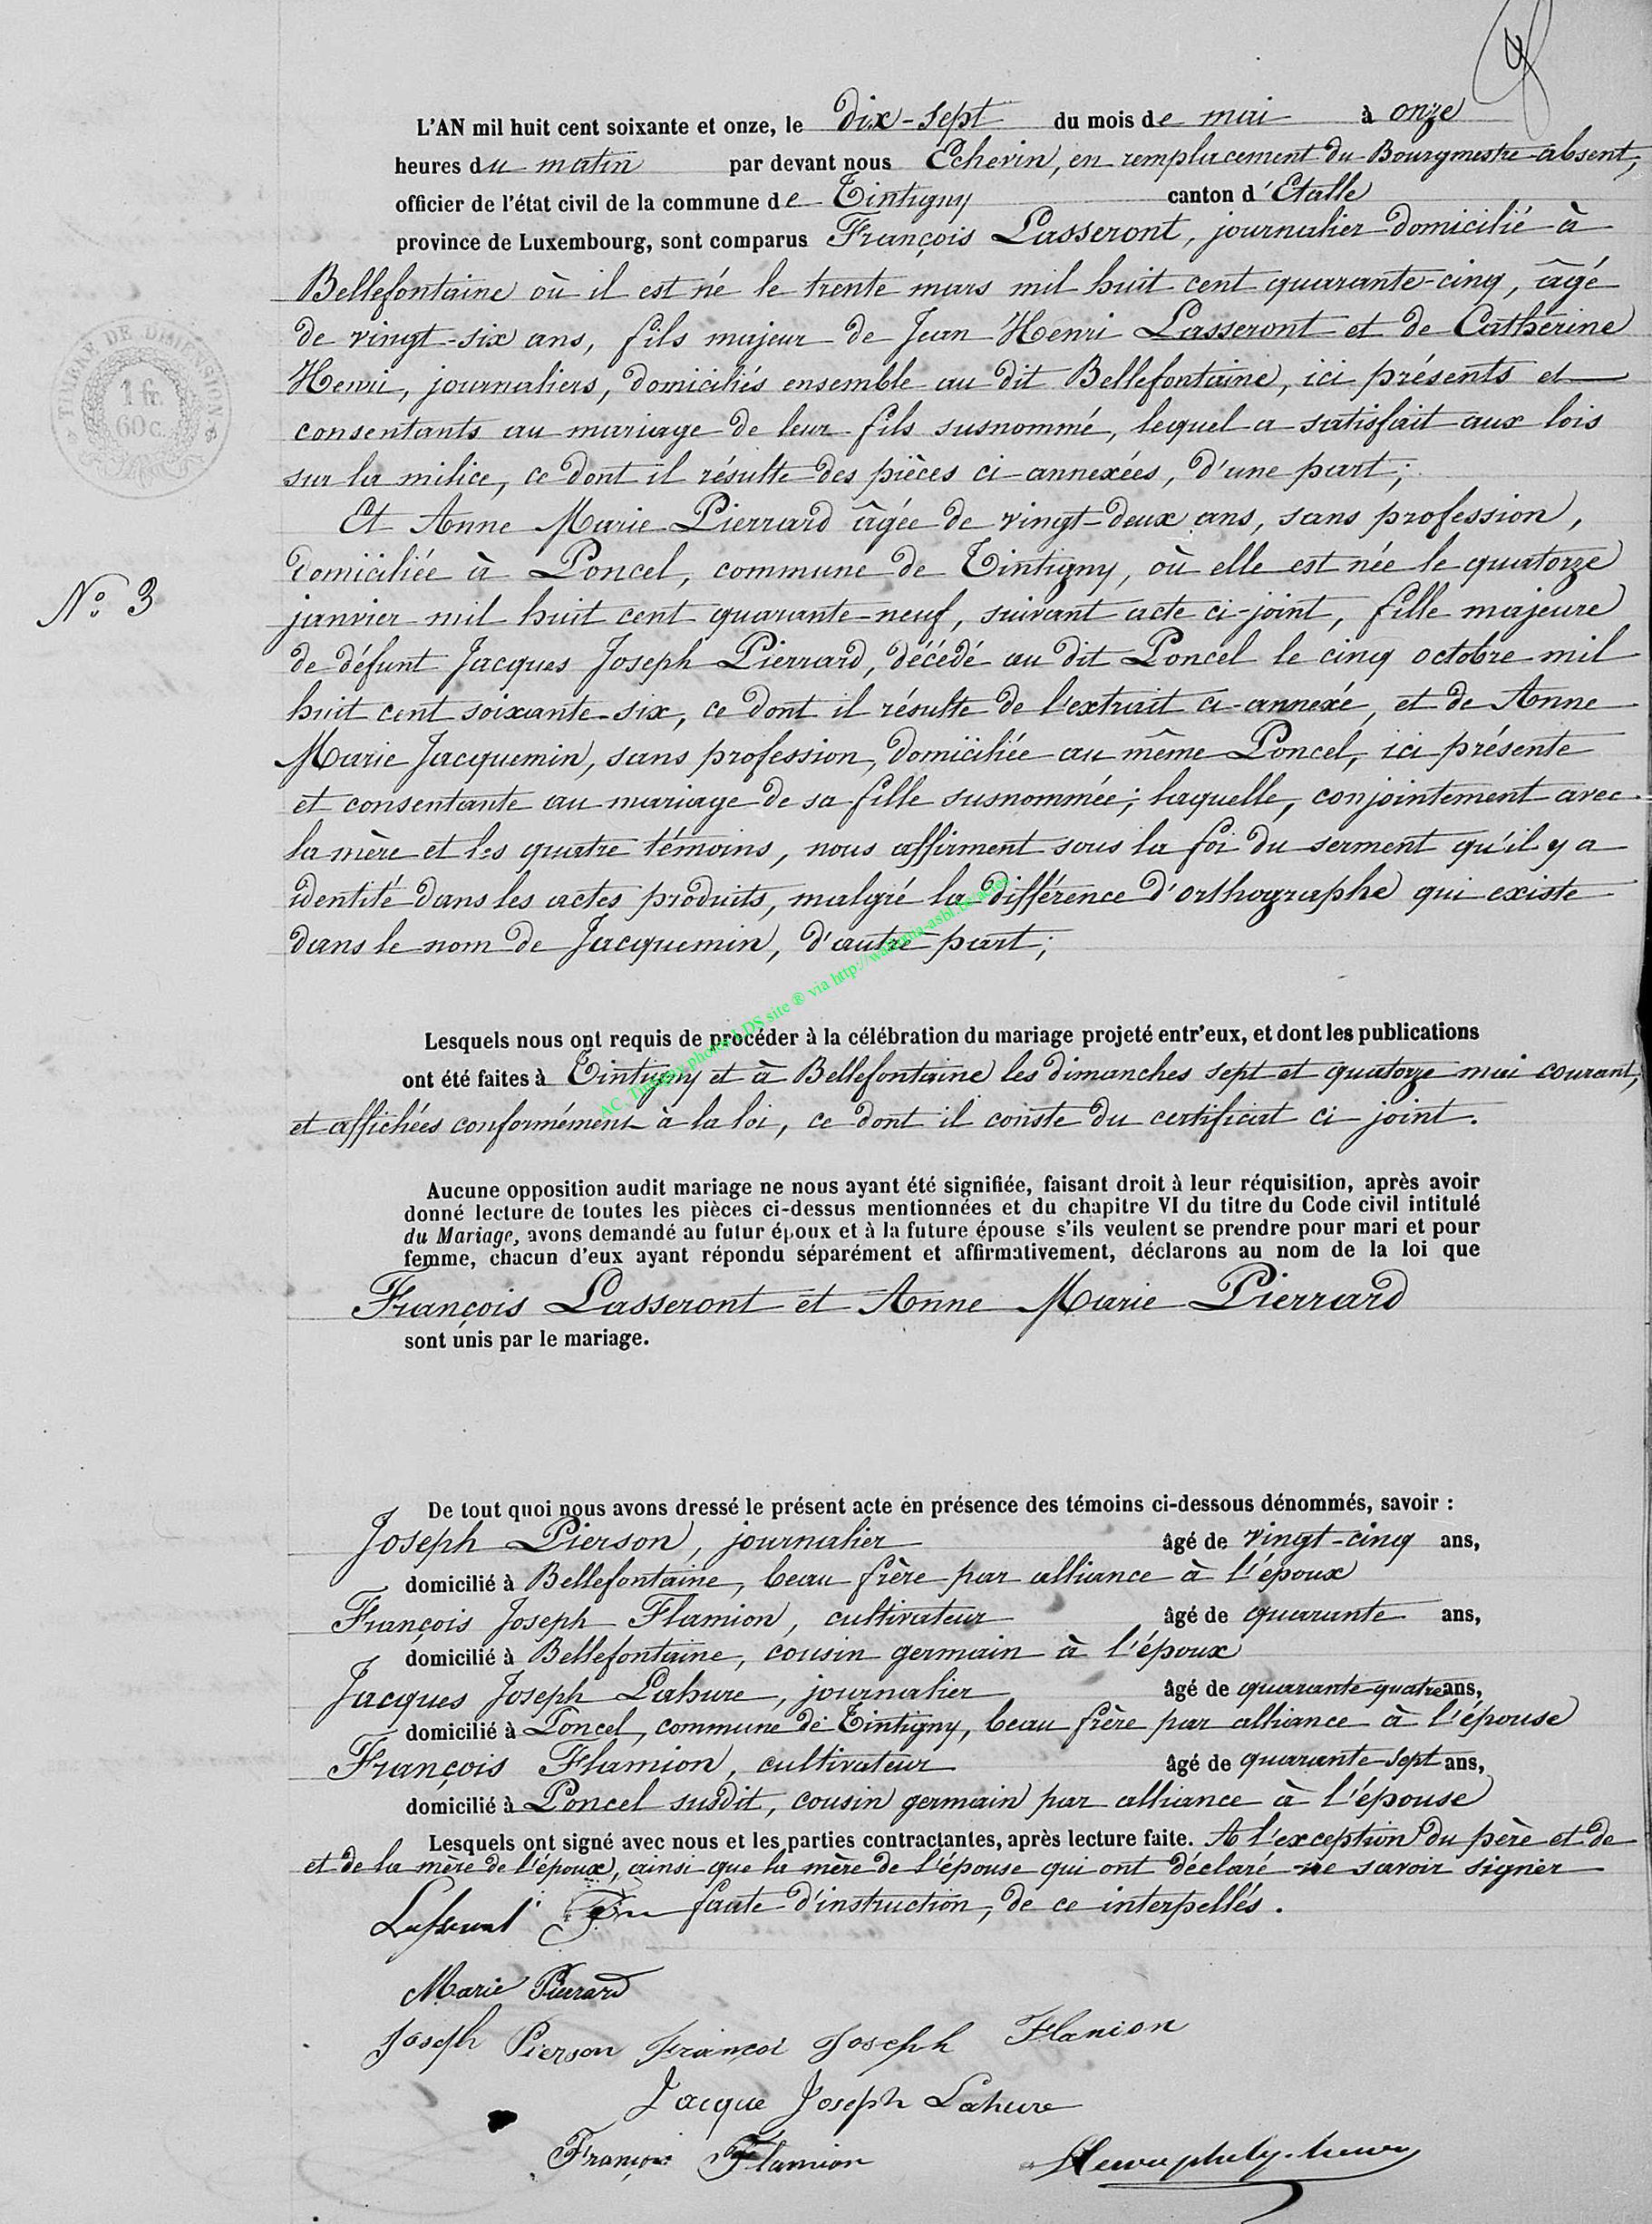 L'AN mil huit cent soixante et onze, le dix-sept du mois de mai à onze
heures du matin par devant nous Echevin, en remplacement du Bourgmestre absent,
officier de l'état civil de la commune de Tintigny canton d'Etalle
province de Luxembourg, sont comparus François Lasseront, journalier domicilié à
Bellefontaine où il est né le trente mars mil huit cent quarante-cinq, âgé
de vingt-six ans, fils majeur de Jean Henri Lasseront et de Catherine
TIMBRE DE DIMENSION
1 fr.
60 c.
Henri, journaliers, domiciliés ensemble au dit Bellefontaine, ici présents et
consentants au mariage de leur fils susnommé, lequel a satisfait aux lois
sur la milice, ce dont il résulte des pièces ci-annexées, d'une part;
Et Anne Marie Pierrard âgée de vingt-deux ans, sans profession,
domiciliée à Poncel, commune de Tintigny, où elle est née le quatorze
N° 3
janvier mil huit cent quarante-neuf, suivant acte ci-joint, fille majeure
de défunt Jacques Joseph Pierrard, décédé au dit Poncel le cinq octobre mil
huit cent soixante-six, ce dont il résulte de l'extrait ci-annexé, et de Anne
Marie Jacquemin, sans profession, domiciliée au même Poncel, ici présente
et consentante au mariage de sa fille susnommée; laquelle, conjointement avec
la mère et les quatre témoins, nous affirment sous la foi du serment qu'il y a
identité dans les actes produits, malgré la différence d'orthographe qui existe
dans le nom de Jacquemin, d'autre part;
Lesquels nous ont requis de procéder à la célébration du mariage projeté entr'eux, et dont les publications
ont été faites à Tintigny et à Bellefontaine les dimanches sept et quatorze mai courant,
et affichées conformément à la loi, ce dont il conste du certificat ci-joint.
Aucune opposition audit mariage ne nous ayant été signifiée, faisant droit à leur réquisition, après avoir
donné lecture de toutes les pièces ci-dessus mentionnées et du chapitre VI du titre du Code civil intitulé
du Mariage, avons demandé au futur époux et à la future épouse s'ils veulent se prendre pour mari et pour
femme, chacun d'eux ayant répondu séparément et affirmativement, déclarons au nom de la loi que
François Lasseront et Anne Marie Pierrard
sont unis par le mariage.
De tout quoi nous avons dressé le présent acte en présence des témoins ci-dessous dénommés, savoir :
Joseph Pierson, journalier âgé de vingt-cinq ans,
domicilié à Bellefontaine, beau frère par alliance à l'époux
François Joseph Flamion, cultivateur âgé de quarante ans,
domicilié à Bellefontaine, cousin germain à l'époux
Jacques Joseph Lahure, journalier âgé de quarante-quatre ans,
domicilié à Poncel, commune de Tintigny, beau frère par alliance à l'épouse
François Flamion, cultivateur âgé de quarante-sept ans,
domicilié à Poncel susdit, cousin germain par alliance à l'épouse
Lesquels ont signé avec nous et les parties contractantes, après lecture faite. A l'exception du père et de
et de la mère de l'époux, ainsi que la mère de l'épouse qui ont déclaré ne savoir signer
faute d'instruction, de ce interpellés.
Marie Pierrard
Joseph Pierson Françoi Joseph Flanion
Jacque Joseph Lahure
François Flamion